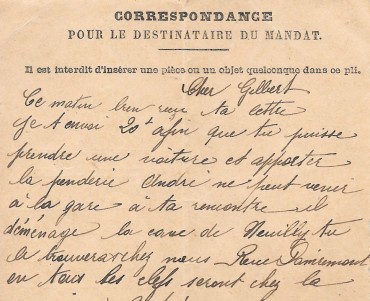 CORRESPONDANCE
POUR LE DESTINATAIRE DU MANDAT.
Il est interdit d'insérer une pièce ou un objet quelconque dans ce pli.
Cher Gilbert
Ce matin bien reçu ta lettre
je t envoi 20f afin que tu puisse
prendre une voiture et apporter
la penderie André ne peut venir
a la gare à ta rencontre il
déménage la cave de Neuilly tu
le trouveras chez nous Rue
en tous les clefs seront chez la